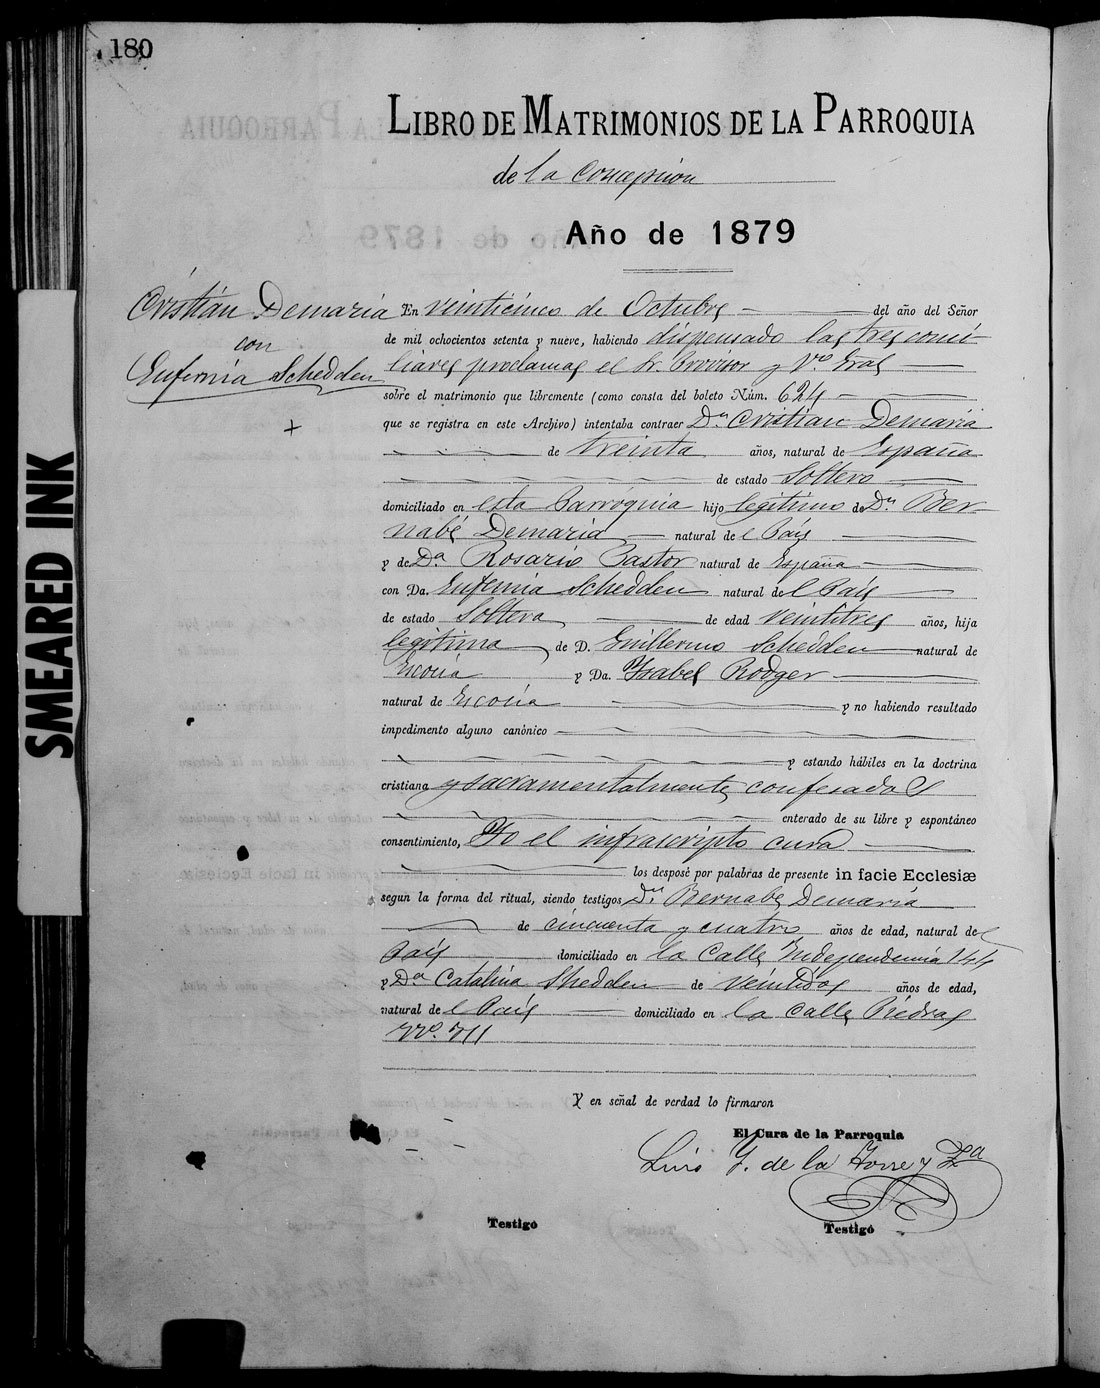 180
LIBRO DE MATRIMONIOS DE LA PARROQUIA
de la Concepcion
Año de 1879
Cristián Demaria
con
Eufemia Schedden
En veinticinco de Octubre del año del Señor
de mil ochocientos setenta y nueve, habiendo dispensado las tres conci-
liares proclamas el Sr. Provisor y Vo. Gral
sobre el matrimonio que libremente (como consta del boleto Núm. 624
que se registra en este Archivo) intentaba contraer Dn Cristian Demaria
de treinta años, natural de España
de estado Soltero
domiciliado en esta Parróquia hijo legítimo de Dn Ber-
nabé Demaria natural de l País
y de Da Rosario Pastor natural de España
con Da. Eufemia Schedden natural de l País
de estado Soltera de edad veintitres años, hija
legítima de D. Guillermo Schedden natural de
Escosia y Da. Ysabel Rodger
natural de Escosia y no habiendo resultado
impedimento alguno canónico
y estando hábiles en la doctrina
cristiana y sacramentalmente confesados
enterado de su libre y espontáneo
consentimiento, Yo el infrascripto cura
los desposé por palabras de presente in facie Ecclesiæ
segun la forma del ritual, siendo testigos Dn. Bernabe Demaria
de cincuenta y cuatro años de edad, natural de l
País domiciliado en la Calle Independencia 144
y Da Catalina Shedden de veintidos años de edad,
natural de l País domiciliado en la Calle Piedras
No. 711
Y en señal de verdad lo firmaron
El Cura de la Parroquia
Luis Y. de la Torre y Za
Testigo Testigo
SMEARED INK